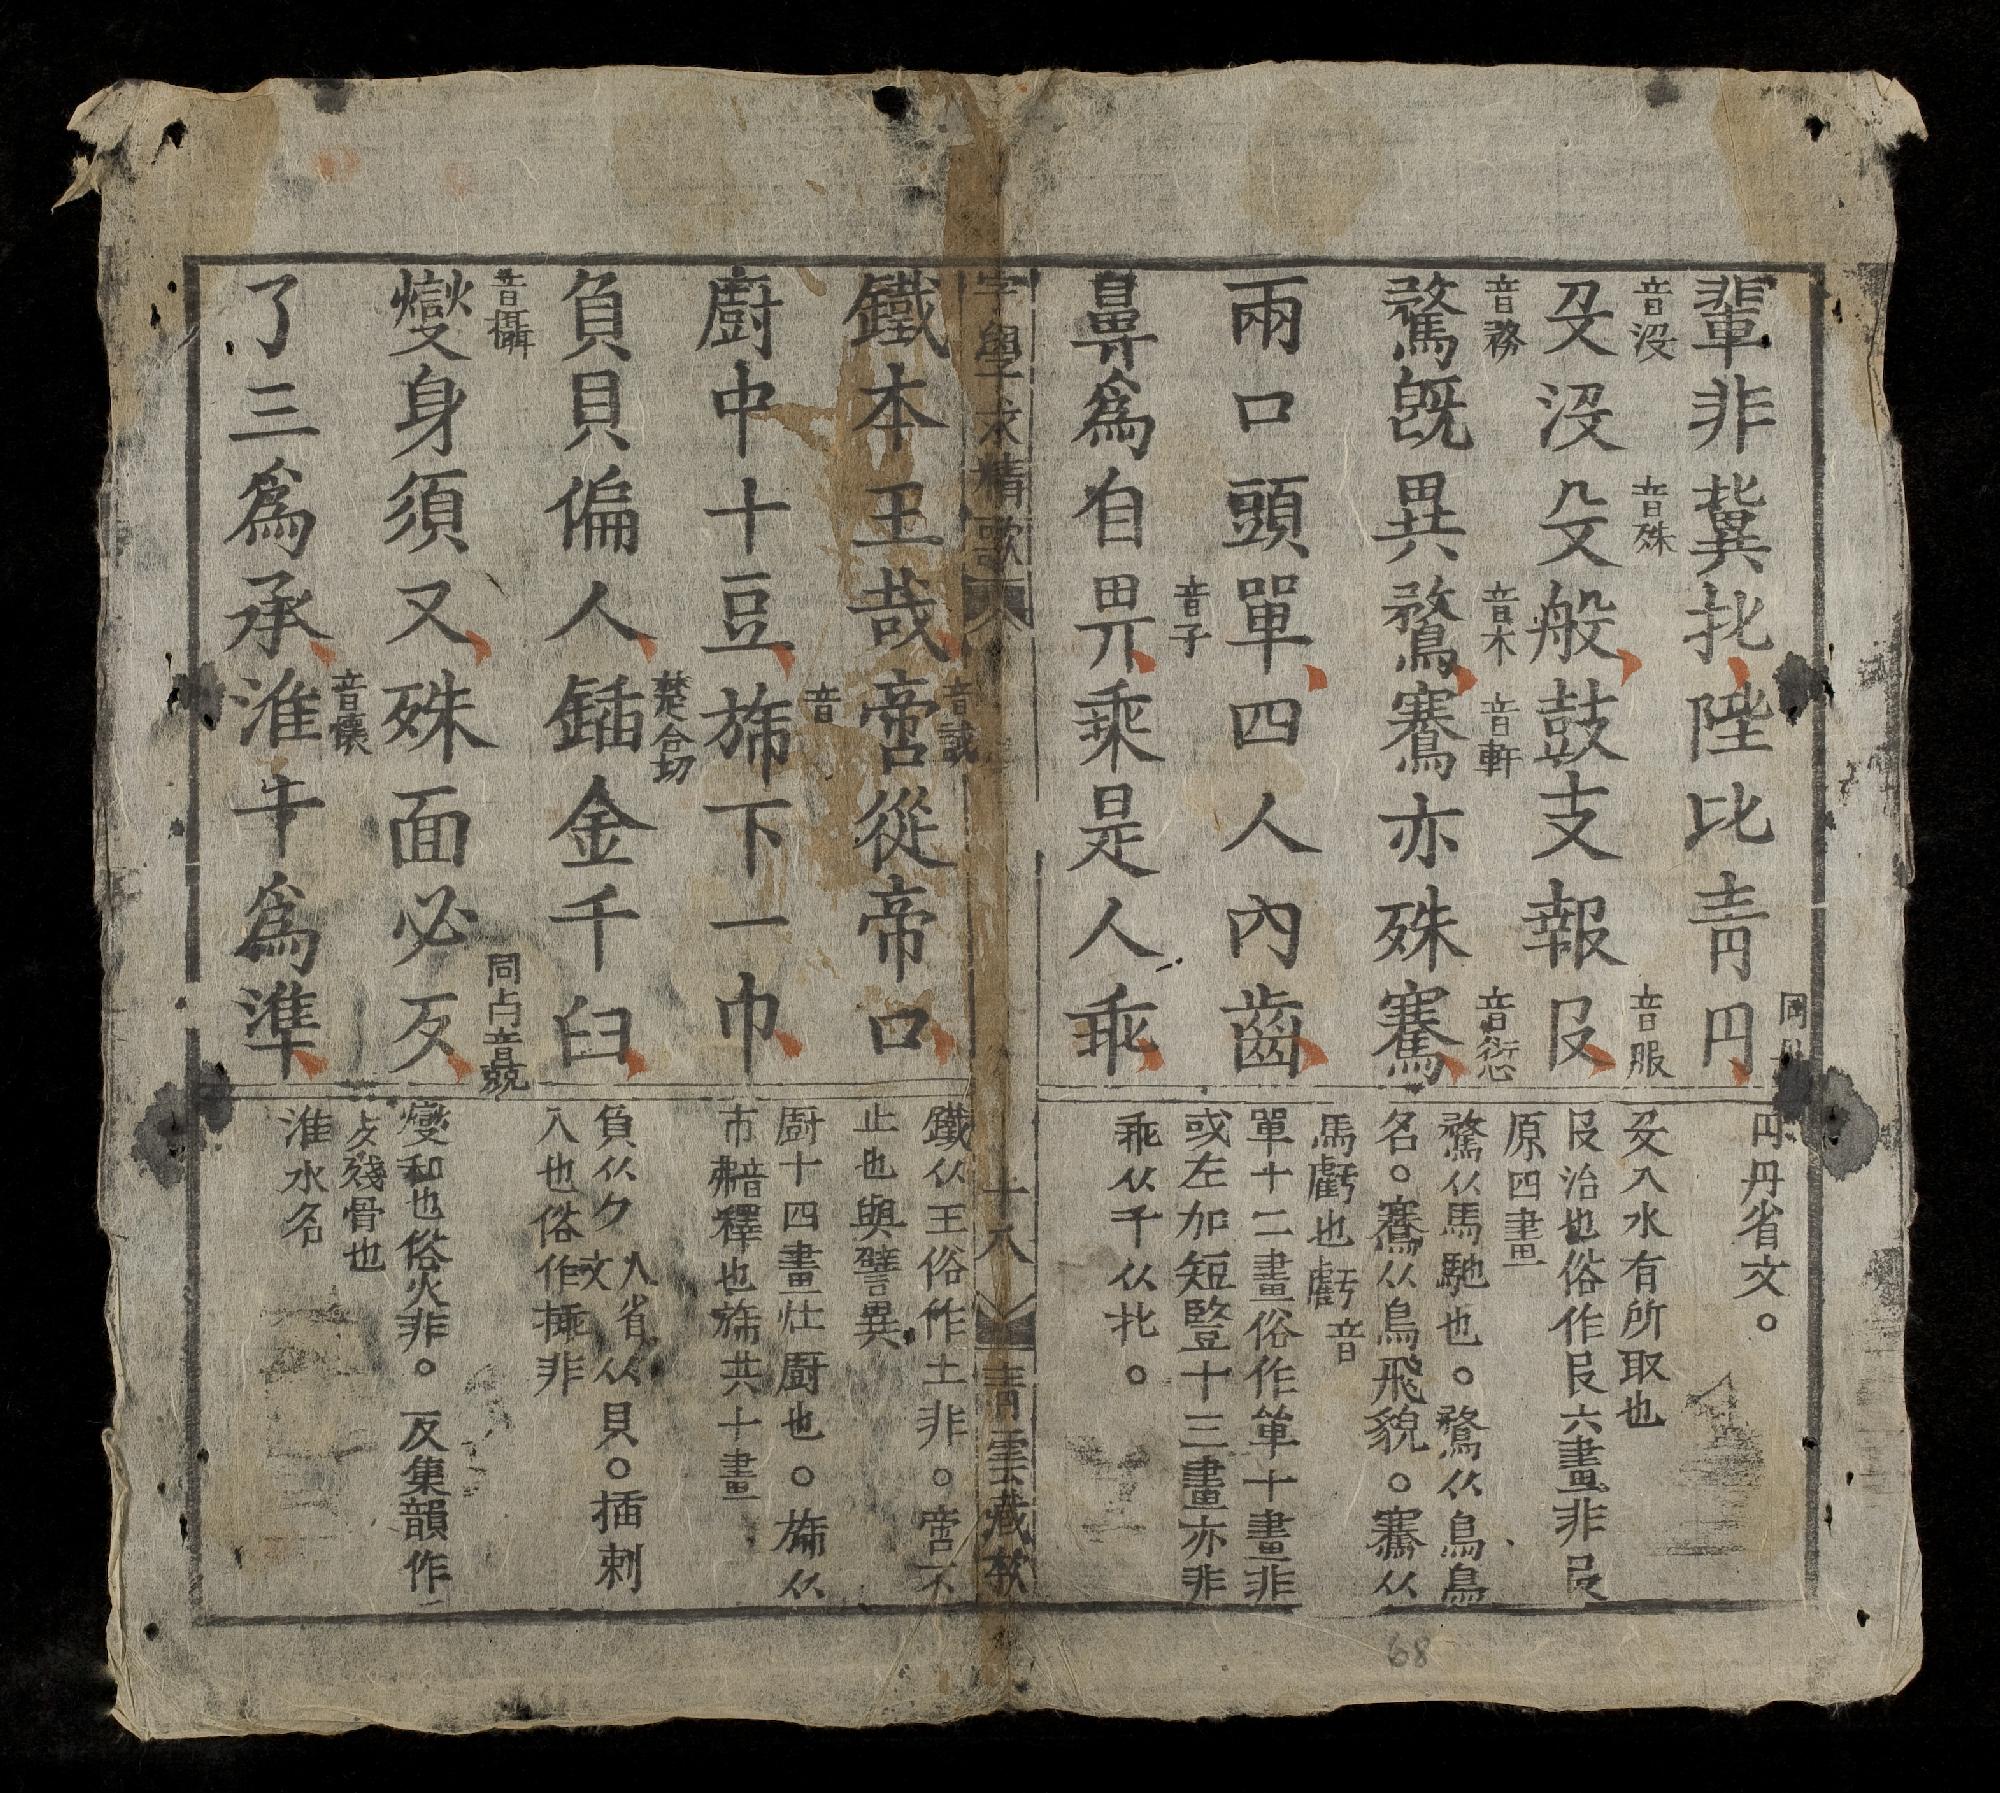 輩非冀比陞比靑円
音沒
音殊
同丹
円丹省文。
㕛沒殳般鼓支報𠬝
音務
音木
音軒
音服
音愆
㕛入水有所取也
𠬝治也俗作艮六畫非𠬝
原四畫
騖旣異鶩鶱亦殊騫
騖从馬馳也。鶩从鳥鳥
名。鶱从鳥飛貌。騫从
馬虧也虧音
兩口頭單四人內齒
單十二畫俗作单十畫非
或左加短豎十三畫亦非
音子
鼻爲自畀乘是人乖
乖从千从比。
字學求精歌
十八
靑雲藏板
鐵本王哉啻從帝口
音試
鐵从王俗作土非。啻不
止也與諬異
廚中十豆斾下一巾
音
廚十四畫灶廚也。斾从
市 音 釋也斾共十畫
負貝偏人鍤金千臼
楚合切
負从勹 人省文 从貝。插刺
入也俗作揷非
音攝
同占音
燮身須又殊面必歹
燮和也俗火非。歹集韻作
歺殘骨也
音懷
了三爲承淮牛爲準
淮水名
68